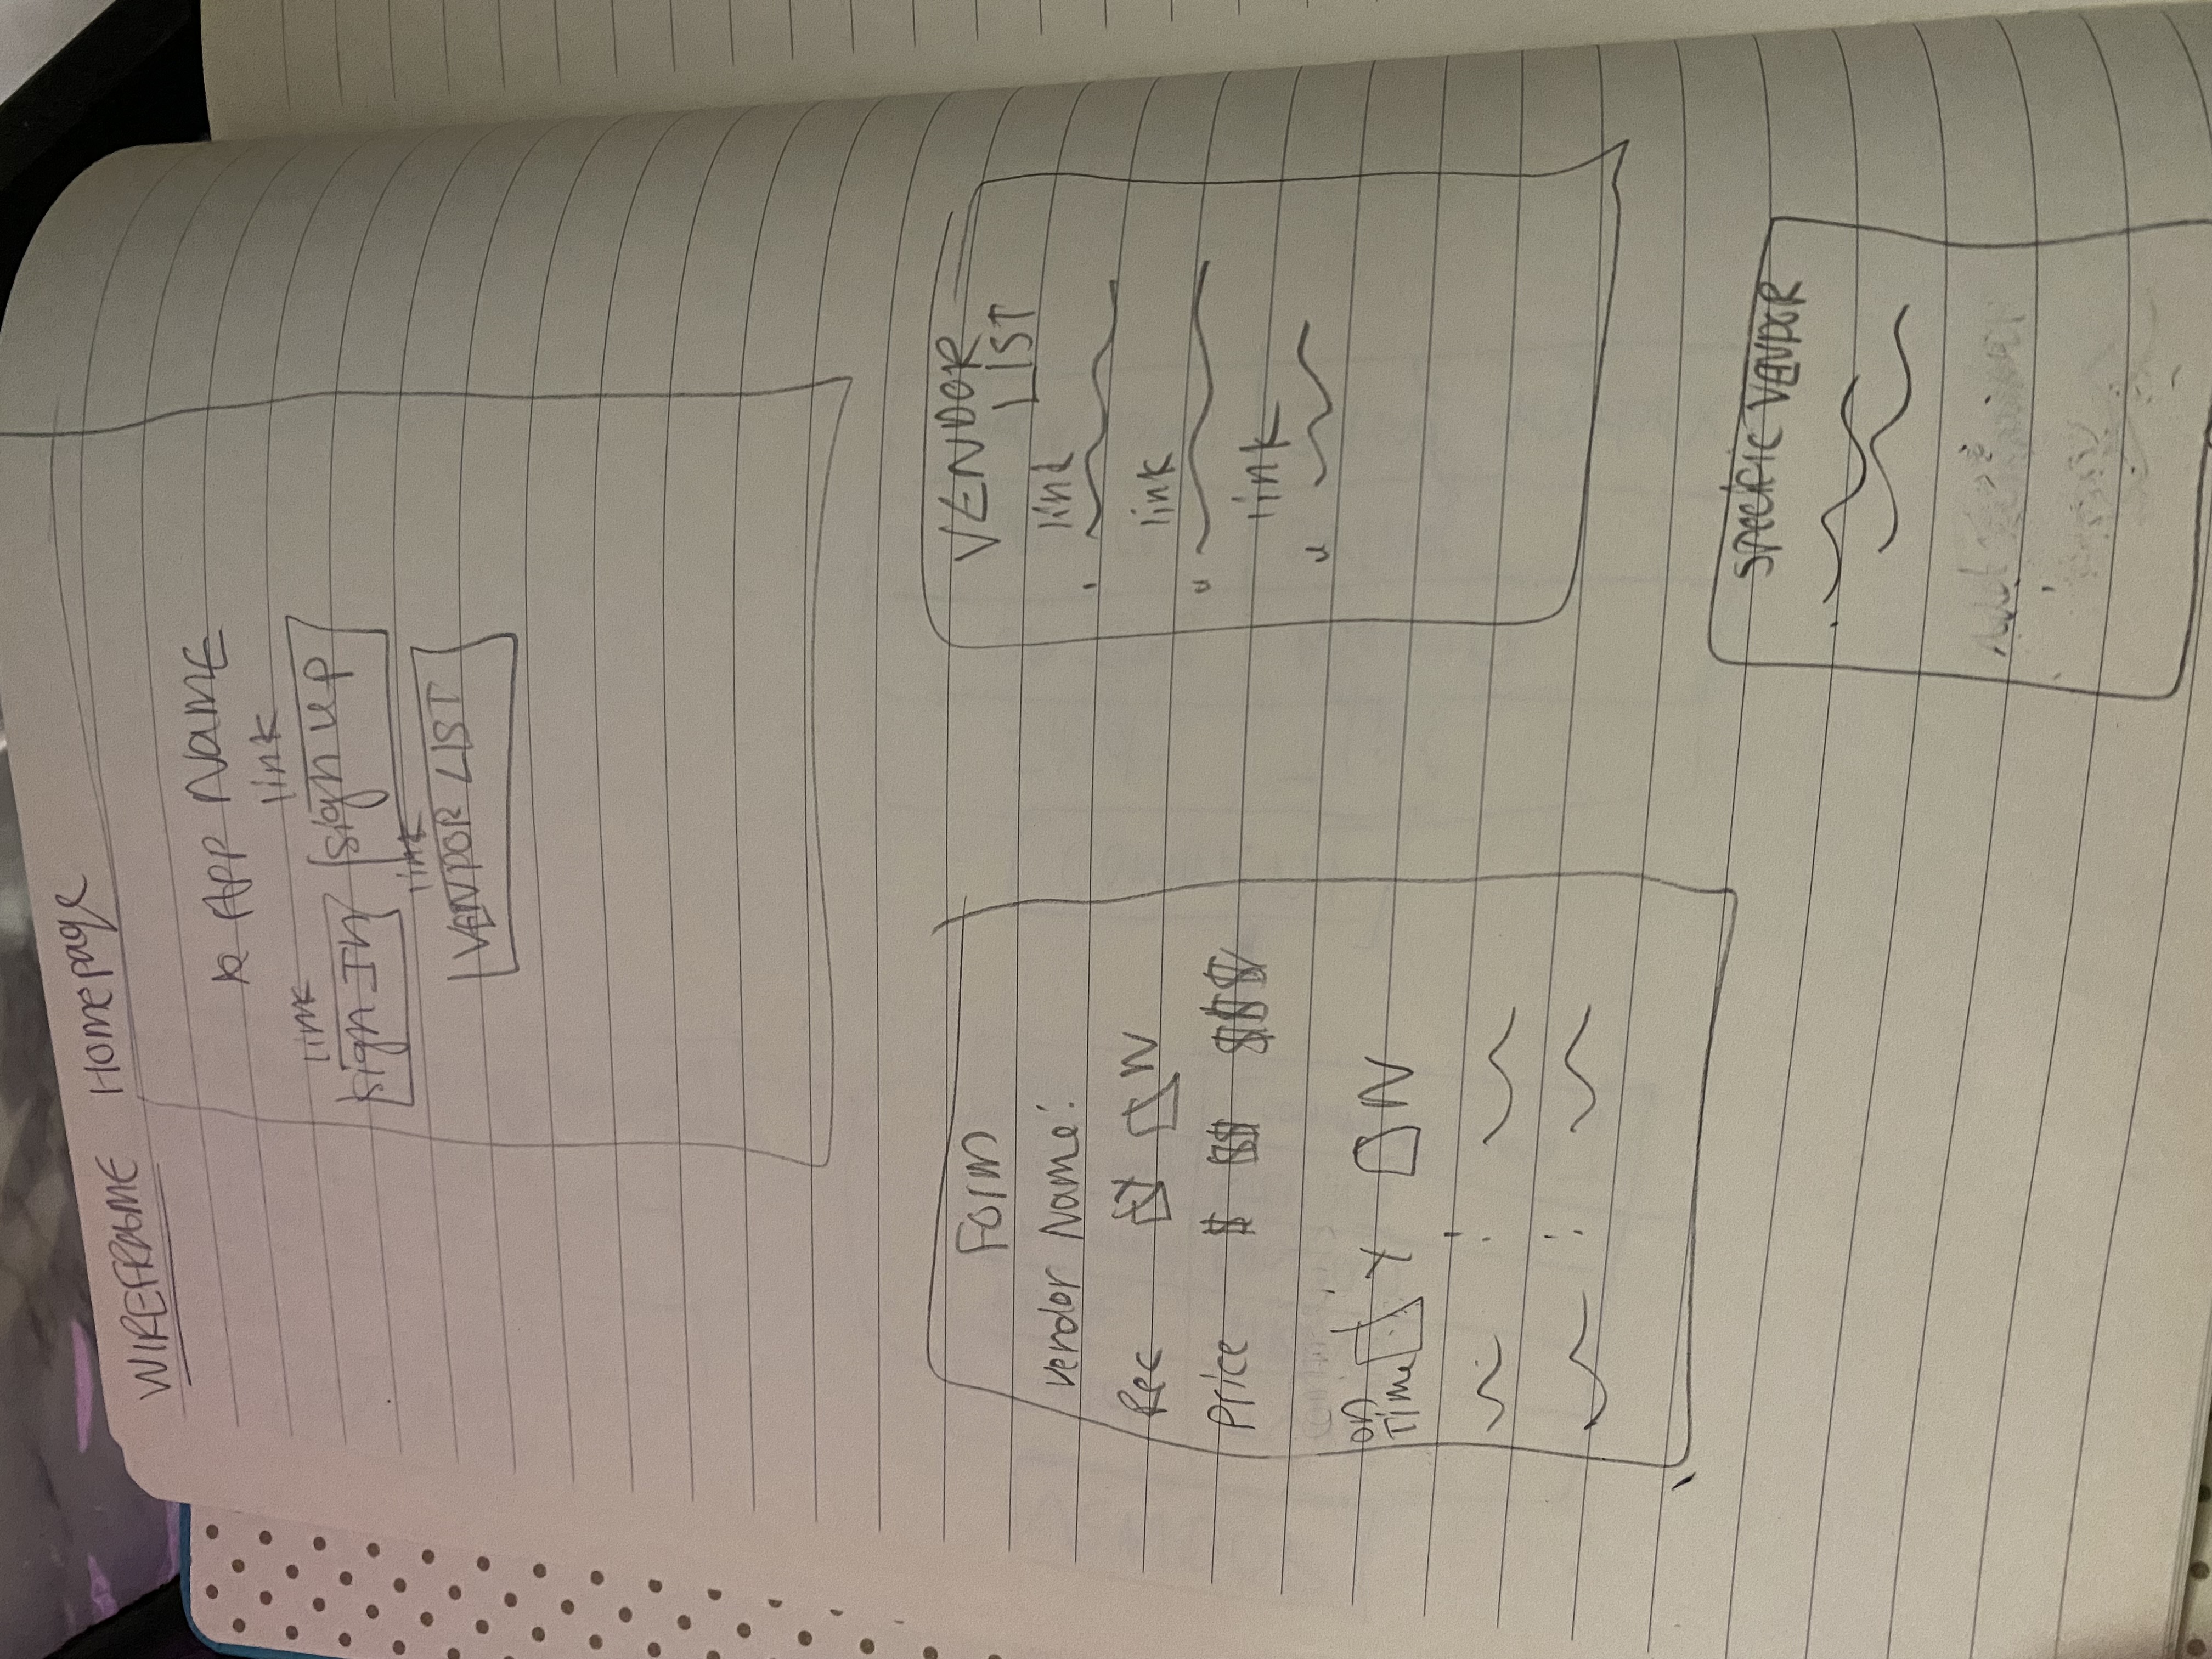 WIREFRAME Homepage
APP NAME
link link
sign In sign up
link
VENDOR LIST
FORM
Vendor Name:
Rec Y N
Price $ $$ $$$
on
Time Y N
VENDOR
LIST
link
link
link
SPECIFIC VENDOR